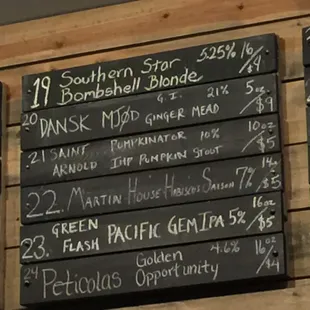 19 Southern Star 5.25% 16/$4
Bombshell Blonde
20 DANSK MJØD G.I. GINGER MEAD 21% 5oz/$9
21 SAINT ARNOLD PUMPKINATOR 10% IMP PUMPKIN STOUT 10oz/$5
22. MARTIN HOUSE HIBISCUS SAISON 7% 14oz/$5
23. GREEN FLASH PACIFIC GEM IPA 5% 16oz/$5
24 Peticolas Golden Opportunity 4.6% 16oz/$4